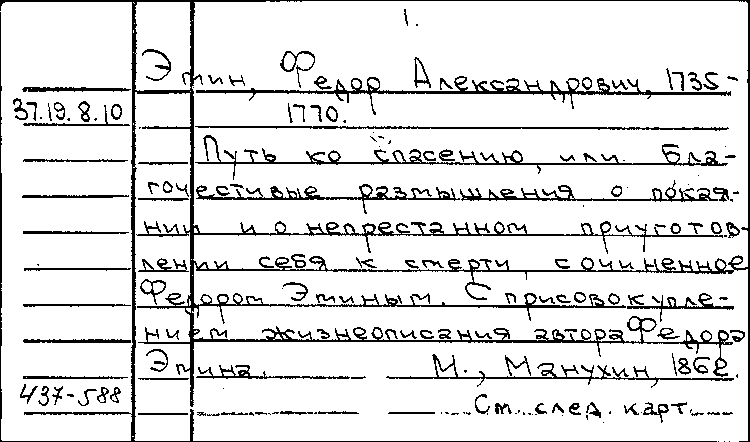 1.
Эмин, Федор Александрович, 1735-
37.19.8.10 1770.
Путь ко спасению, или Бла-
гочестивые размышления о покая-
нии и о непрестанном приуготов-
лении себя к смерти, сочиненное
Федором Эминым. С присовокупле-
нием жизнеописания автора Федора
Эмина. М., Манухин, 1862.
437-588 См. след. карт.